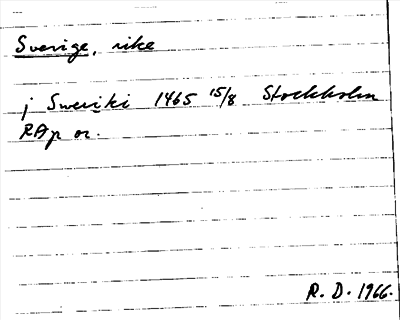 Sverige, rike
j Sweriki 1465 15/8 Stockholm
RAp or.
R. D. 1966.